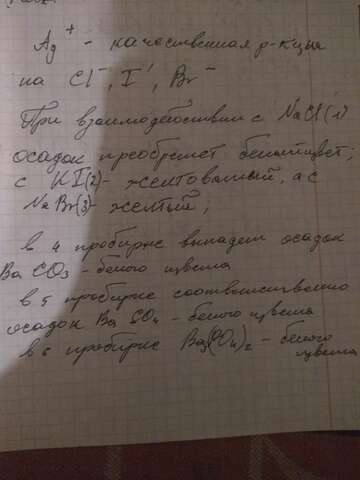 Ag⁺ - качественная р-кция
на Cl⁻, I⁻, Br⁻
При взаимодействии с NaCl (1)
осадок преобретет белый цвет;
с KI(2)- желтоватый, а с
NaBr(3)- желтый;
в 4 пробирке выпадет осадок
BaCO₃ - белого цвета
в 5 пробирке соответственно
осадок BaSO₄ - белого цвета
в 6 пробирке Ba₃(PO₄)₂ - белого
цвета